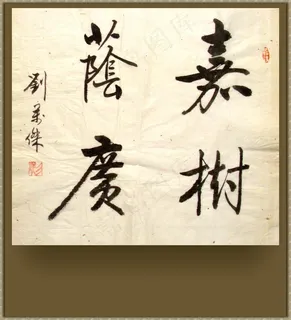 嘉樹
蔭廣
劉業傑